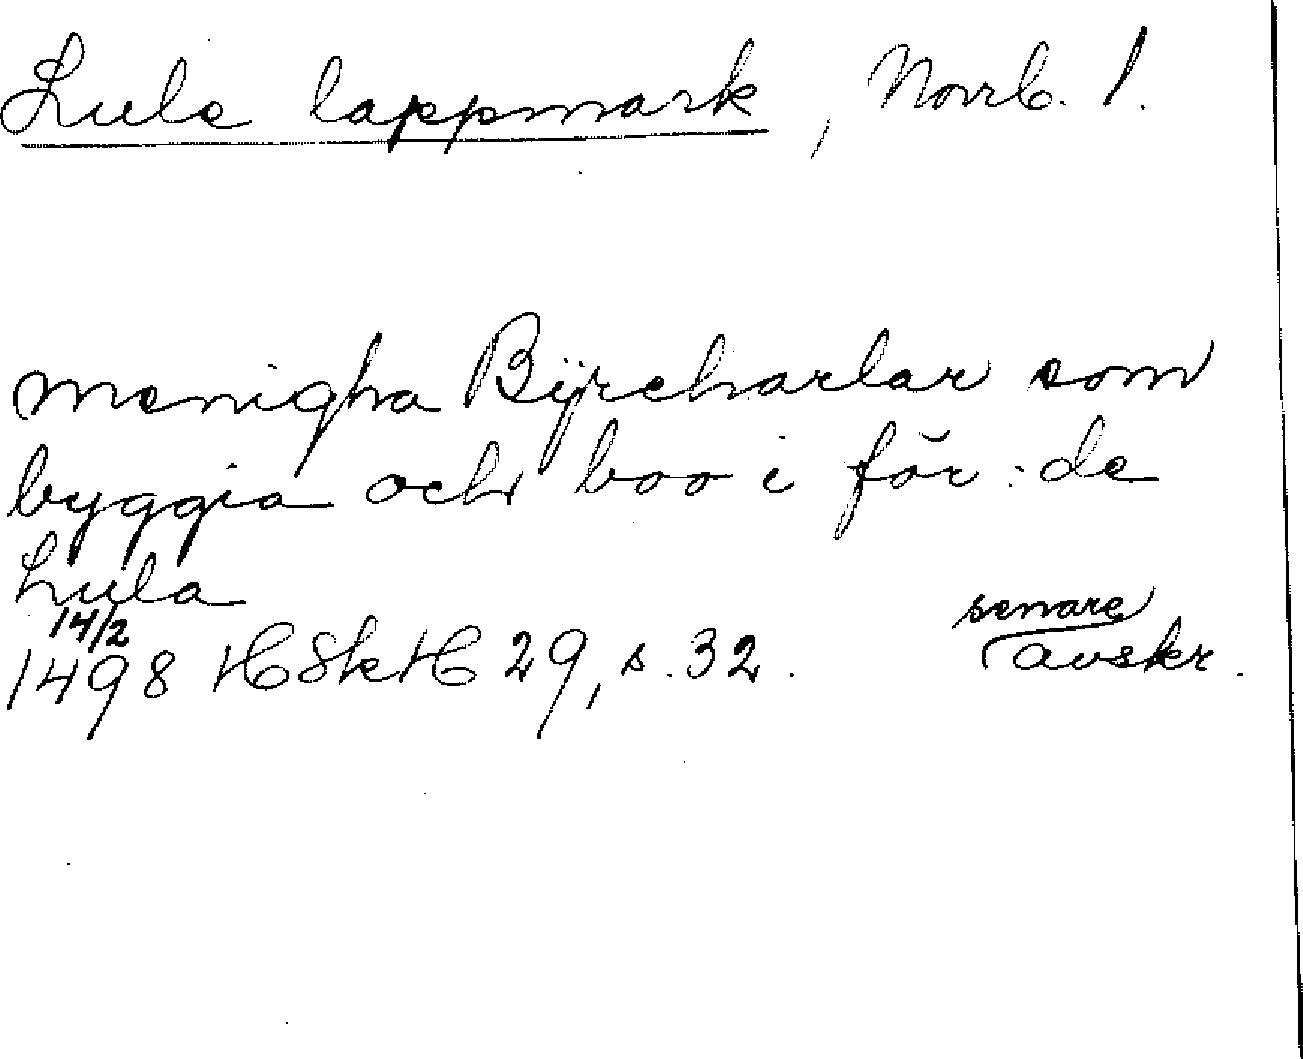 Lule lappmark, Norrb. l.
menigha Bÿrcharlar som
byggia och boo i för:de
Lula
14/2
1498 HSkH 29, s. 32. senare avskr.